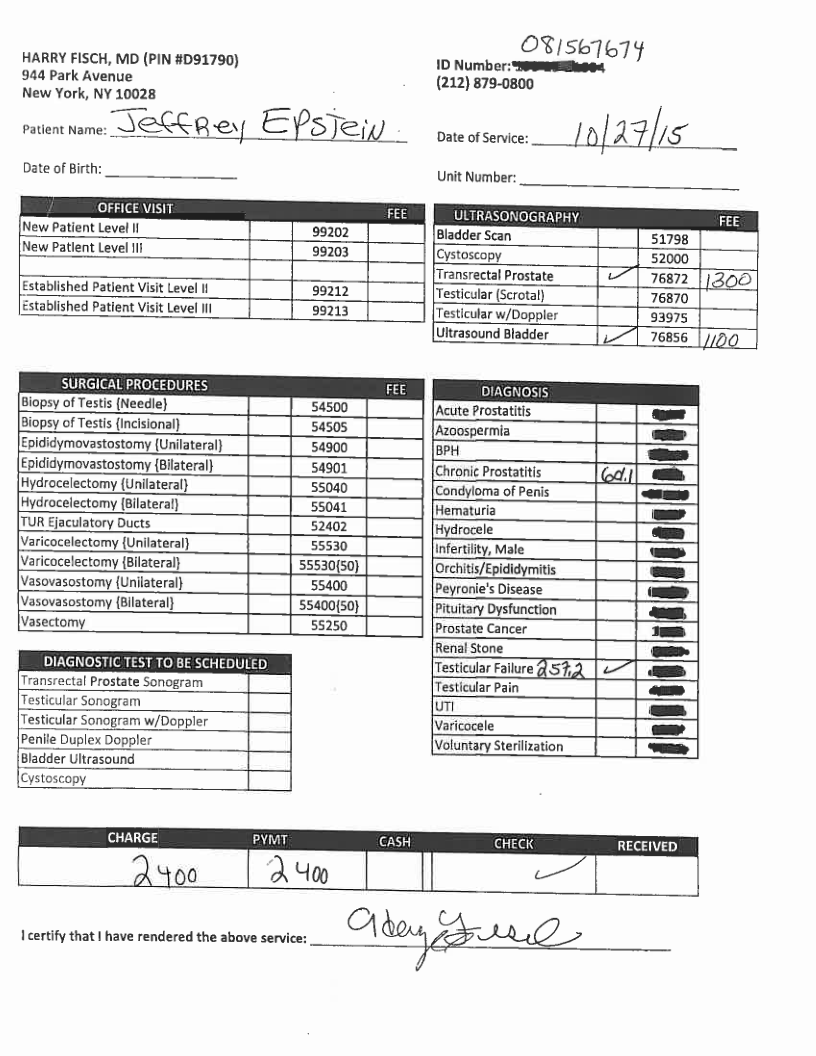 081567674
HARRY FISCH, MD (PIN #D91790)
ID Number:
944 Park Avenue
(212) 879-0800
New York, NY 10028
Patient Name: Jeffrey Epstein
Date of Service: 10/27/15
Date of Birth:
Unit Number:
OFFICE VISIT FEE
New Patient Level II 99202
New Patient Level III 99203
Established Patient Visit Level II 99212
Established Patient Visit Level III 99213
ULTRASONOGRAPHY FEE
Bladder Scan 51798
Cystoscopy 52000
Transrectal Prostate ✓ 76872 1300
Testicular (Scrotal) 76870
Testicular w/Doppler 93975
Ultrasound Bladder ✓ 76856 1100
SURGICAL PROCEDURES FEE
Biopsy of Testis {Needle} 54500
Biopsy of Testis {Incisional} 54505
Epididymovastostomy {Unilateral} 54900
Epididymovastostomy {Bilateral} 54901
Hydrocelectomy {Unilateral} 55040
Hydrocelectomy {Bilateral} 55041
TUR Ejaculatory Ducts 52402
Varicocelectomy {Unilateral} 55530
Varicocelectomy {Bilateral} 55530{50}
Vasovasostomy {Unilateral} 55400
Vasovasostomy {Bilateral} 55400{50}
Vasectomy 55250
DIAGNOSIS
Acute Prostatitis
Azoospermia
BPH
Chronic Prostatitis
Condyloma of Penis
Hematuria
Hydrocele
Infertility, Male
Orchitis/Epididymitis
Peyronie's Disease
Pituitary Dysfunction
Prostate Cancer
Renal Stone
Testicular Failure 257.2 ✓
Testicular Pain
UTI
Varicocele
Voluntary Sterilization
DIAGNOSTIC TEST TO BE SCHEDULED
Transrectal Prostate Sonogram
Testicular Sonogram
Testicular Sonogram w/Doppler
Penile Duplex Doppler
Bladder Ultrasound
Cystoscopy
CHARGE PYMT CASH CHECK RECEIVED
2400 2400 ✓
I certify that I have rendered the above service: